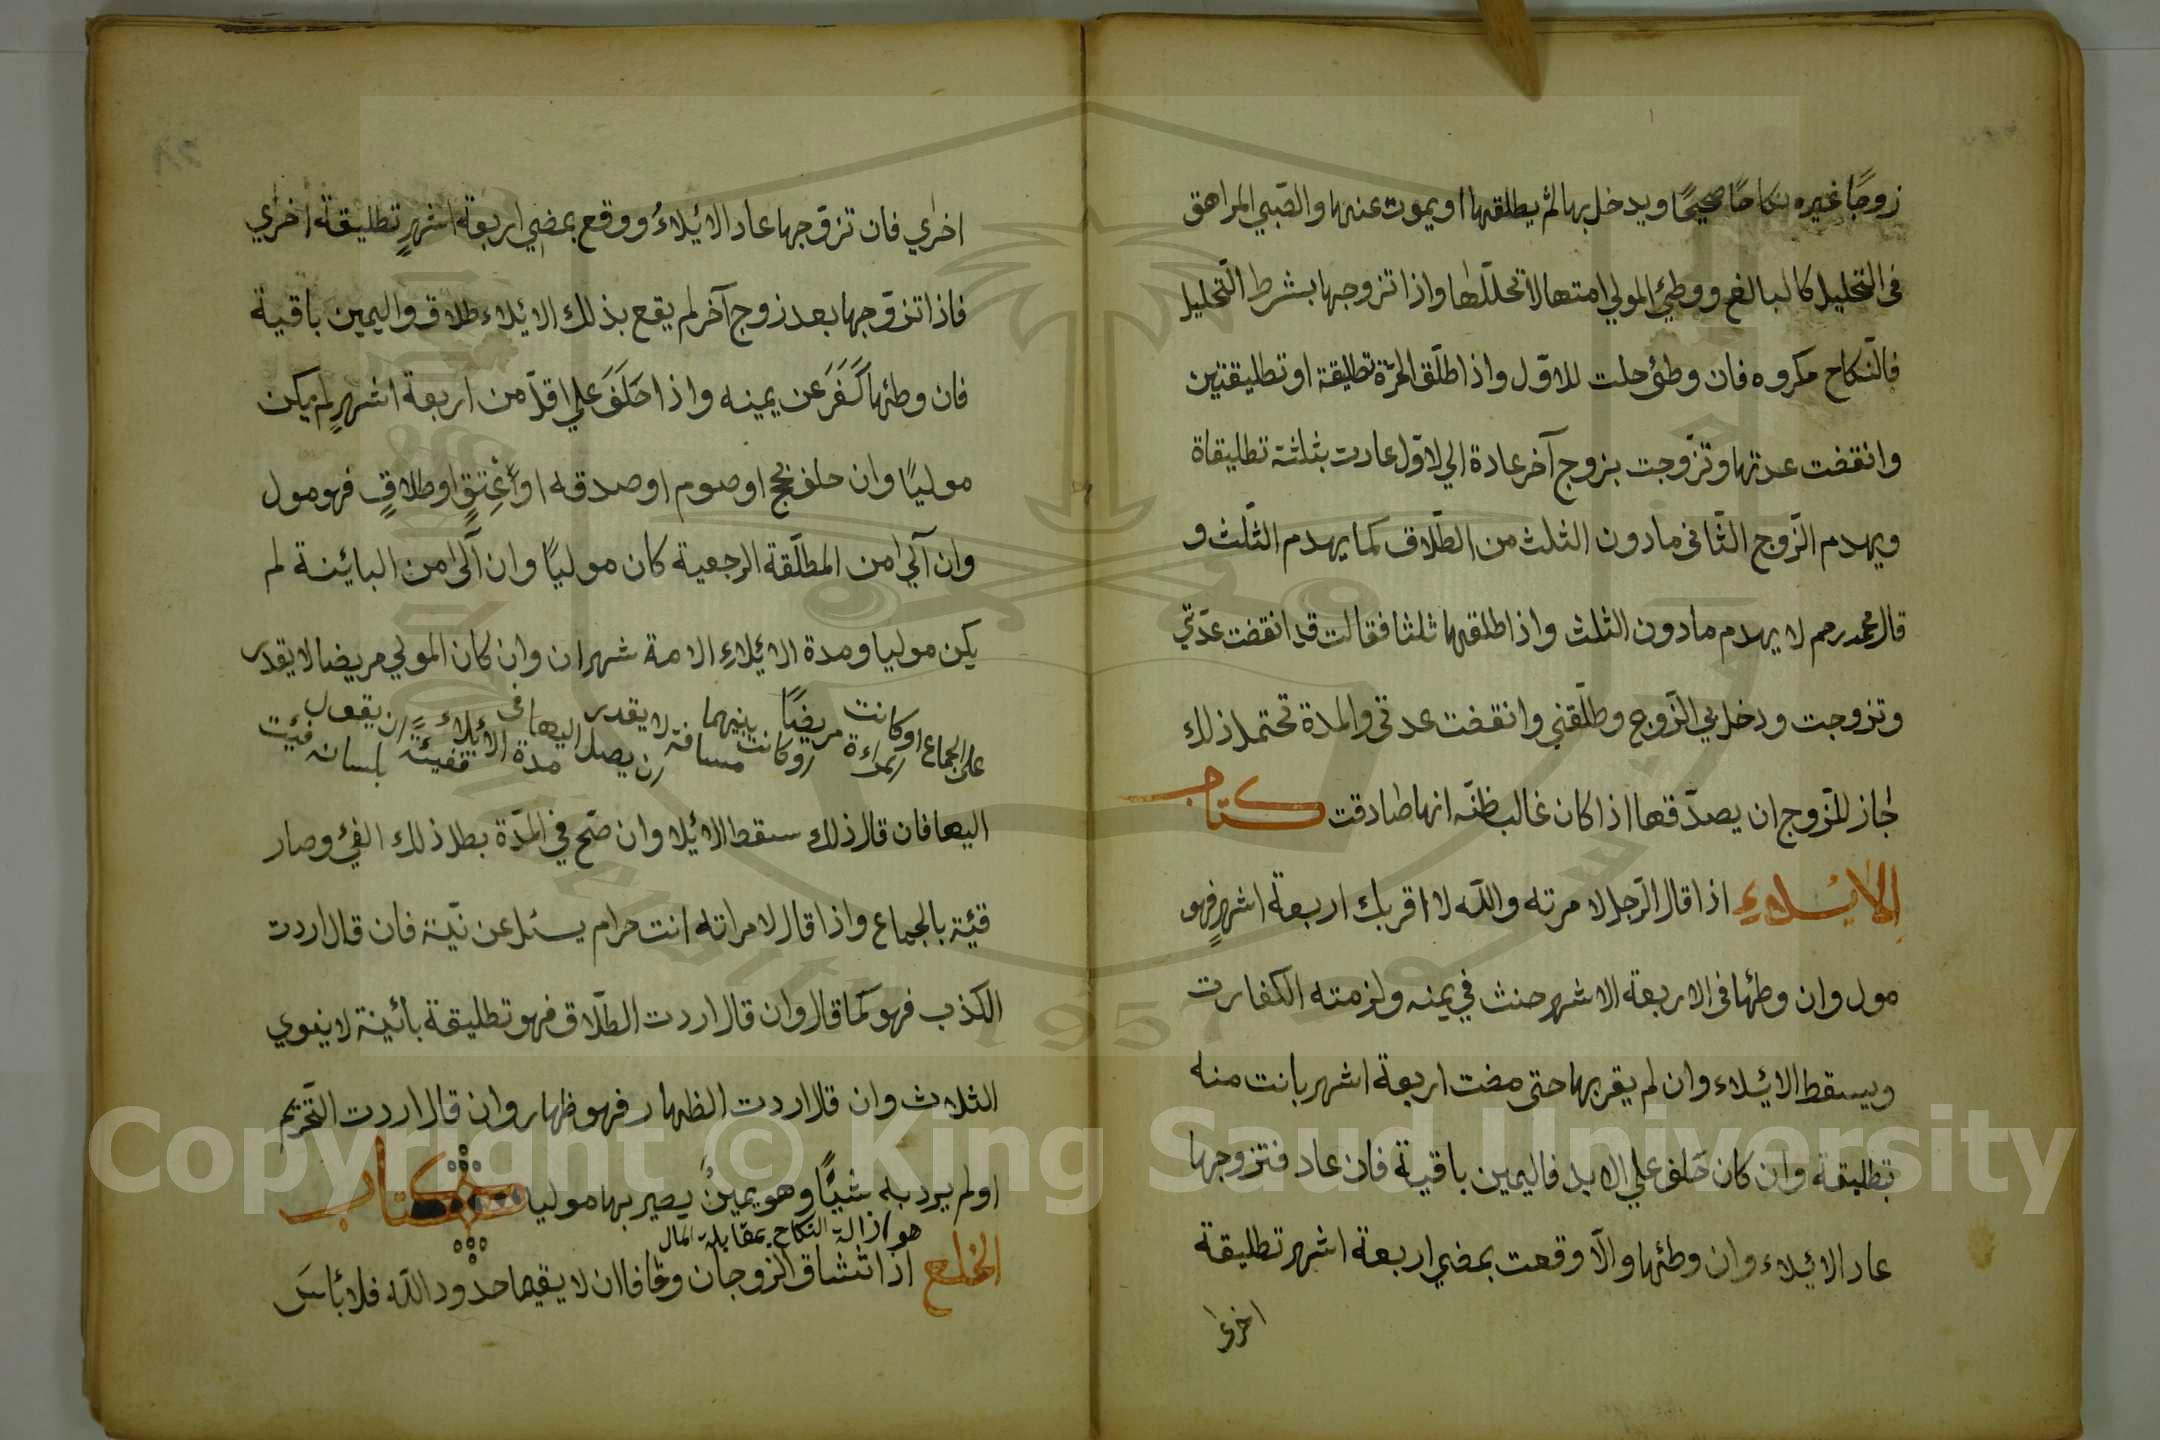 زوجًا غيره نكاحًا صحيحًا ويدخل بها ثم يطلقها او يموت عنها والصّبي المراهق
في التحليل كالبالغ ووطئ المولي امتها لا تحلّلها واذا تزوجها بشرط التّحليل
فالنّكاح مكروه فان وطئ حلت للاوّل واذا طلّق الحرّة تطليقة او تطليقتين
وانقضت عدتها وتزّوجت بزوج آخر عادة الي لاوّل عادت بثلثة تطليقاة
ويهدم الزّوج الثّاني مادون الثلث من الطّلاق كما يهدم الثّلث و
قال محمد رحم لا يهدم مادون الثلث واذا طلقها ثلثا فقالت قد انقضت عدّتي
وتزوجت ودخل بي الزّوج وطلّقني وانقضت عدتي والمدة تحتمل ذلك
جاز للزّوج ان يصدّقها اذا كان غالب ظنّه انها صادقت كتاب
الائلاءِ اذا قال الرّجل لامرته واللّه لا اقربك اربعة اشهرٍ فهو
مول وان وطئها في الاربعة الاشهر حنث في يمنه ولزمته الكفارت
ويسقط الائلاء وان لم يقربها حتى مضت اربعة اشهر بانت منه
بتطليقة وان كان حَلف علي الابد فاليمين باقية فان عاد فتزوجها
عاد الائلاء وان وطئها والّا وقعت بمضي اربعة اشهر تطليقة
اخرا
اخرٰي فان تزوّجها عاد الائلاءُ ووقع بمضي اربعة اشهرٍ تطليقة اخرٰي
فاذا تزوّجها بعد زوج آخر لم يقع بذلك الائلاء طلاق واليمين باقية
فان وطئها كَفَرَ عن يمينه واذا حَلَفَ علي اقلّ من اربعة اشهرٍ لم يكن
موليًا وان حلف بحج او صوم او صدقه او أَعْتِقٍ او طلاقٍ فهو مول
وان آلٰي من المطلّقة الرجعية كان موليًا وان آلٰى من البائنة لم
يكن موليا ومدة الائلاءِ الامة شهران وان كان المولي مريضا لا يقدر
على الجماع او كانت المراءة مريضًا او كانت بينهما مسافة لا يقدر ان يصل اليها في مدة الائلاء ففيئه ان يقول بلسانه فئت
اليها فان قال ذلك سقط الائلا وان صّح في المدّة بطل ذلك الفئ وصار
فئية بالجماع واذا قال لامراته انت حرام يسئل عن نّيّة فان قال اردت
الكذب فهو كما قال وان قال اردت الطّلاق فهو تطليقة بائينة لا ينوي
الثلاث وان قال اردت الظهار فهو ظهار وان قال اردت التّحريم
اولم يرد به شيئًا وهو يمينٌ يصير بها موليا كتاب
هو ازالة النكاح بمقابلة المال
الخلع اذا تشاق الزّوجان وخافا ان لا يقيما حدود اللّه فلا بٔاسَ
Copyright © King Saud University
1957